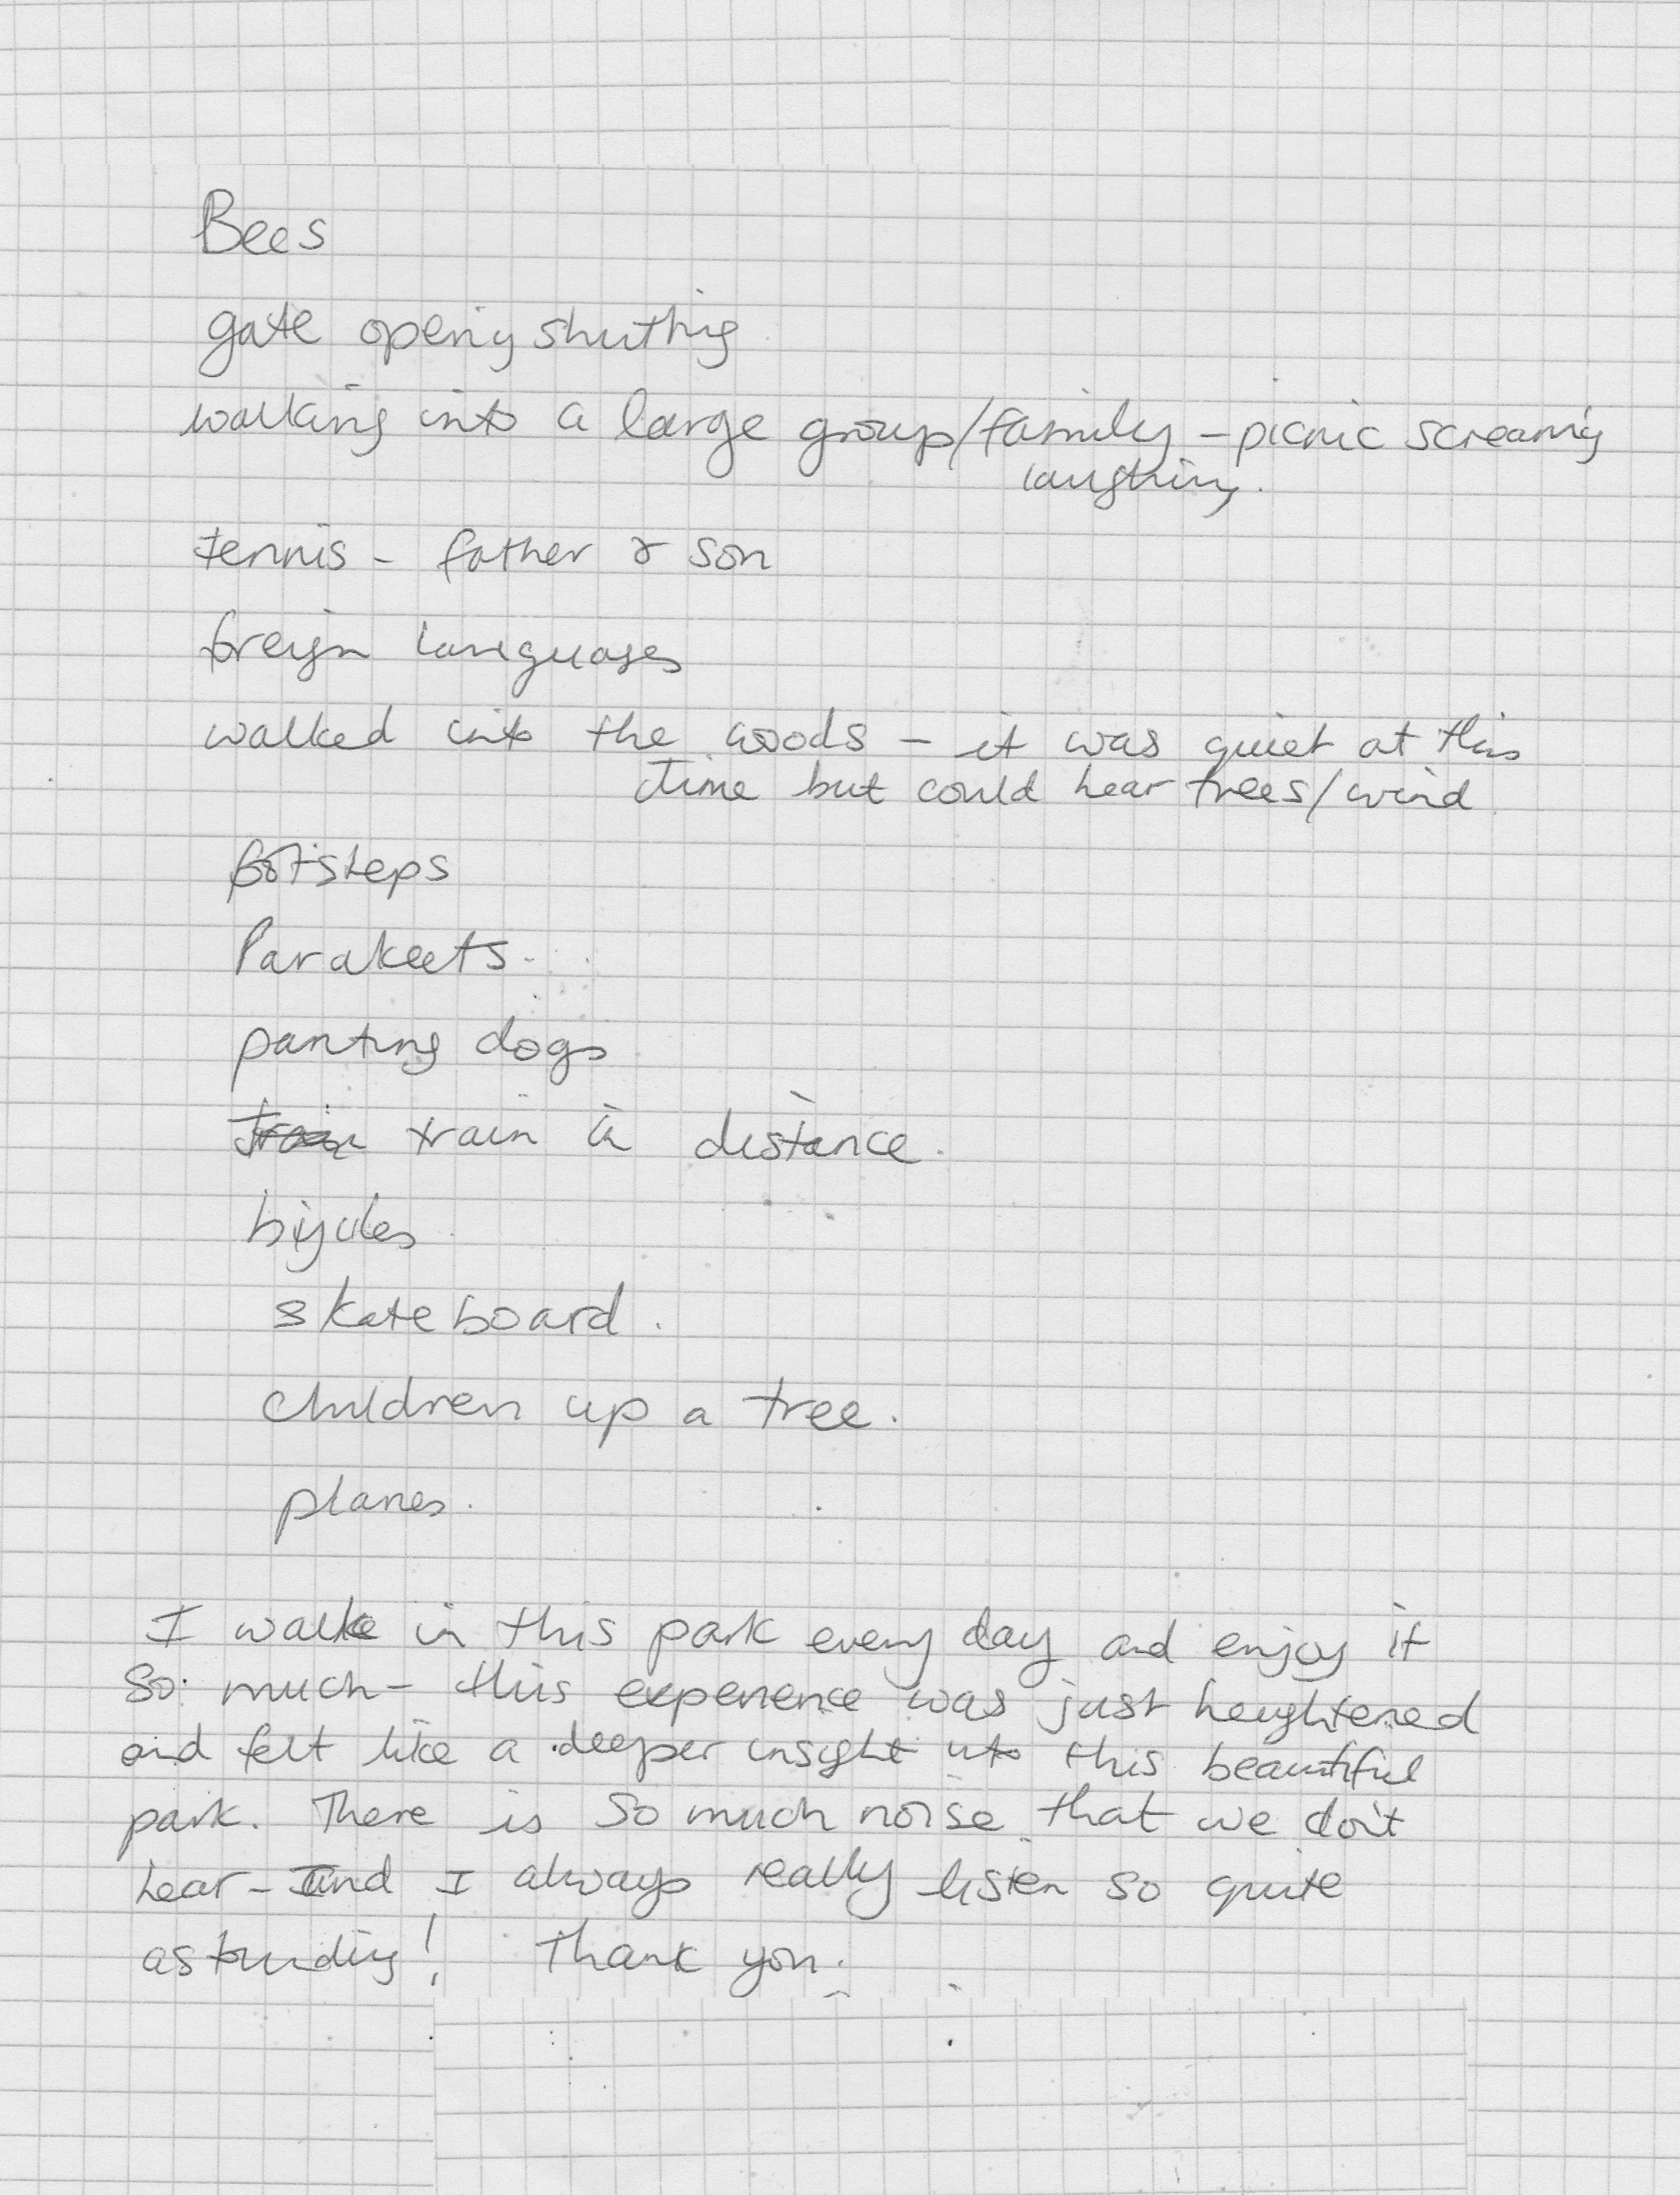 Bees
gate opening shutting
walking into a large group/family - picnic screaming
laughing.
tennis - father & son
foreign languages
walked into the woods - it was quiet at this
time but could hear trees/wind
footsteps
Parakeets.
panting dogs
train in distance.
bicycles
skateboard.
children up a tree.
planes.
I walk in this park every day and enjoy it
so much - this experience was just heightened
and felt like a deeper insight into this beautiful
park. There is so much noise that we don't
hear - and I always really listen so quite
astounding! Thank you.